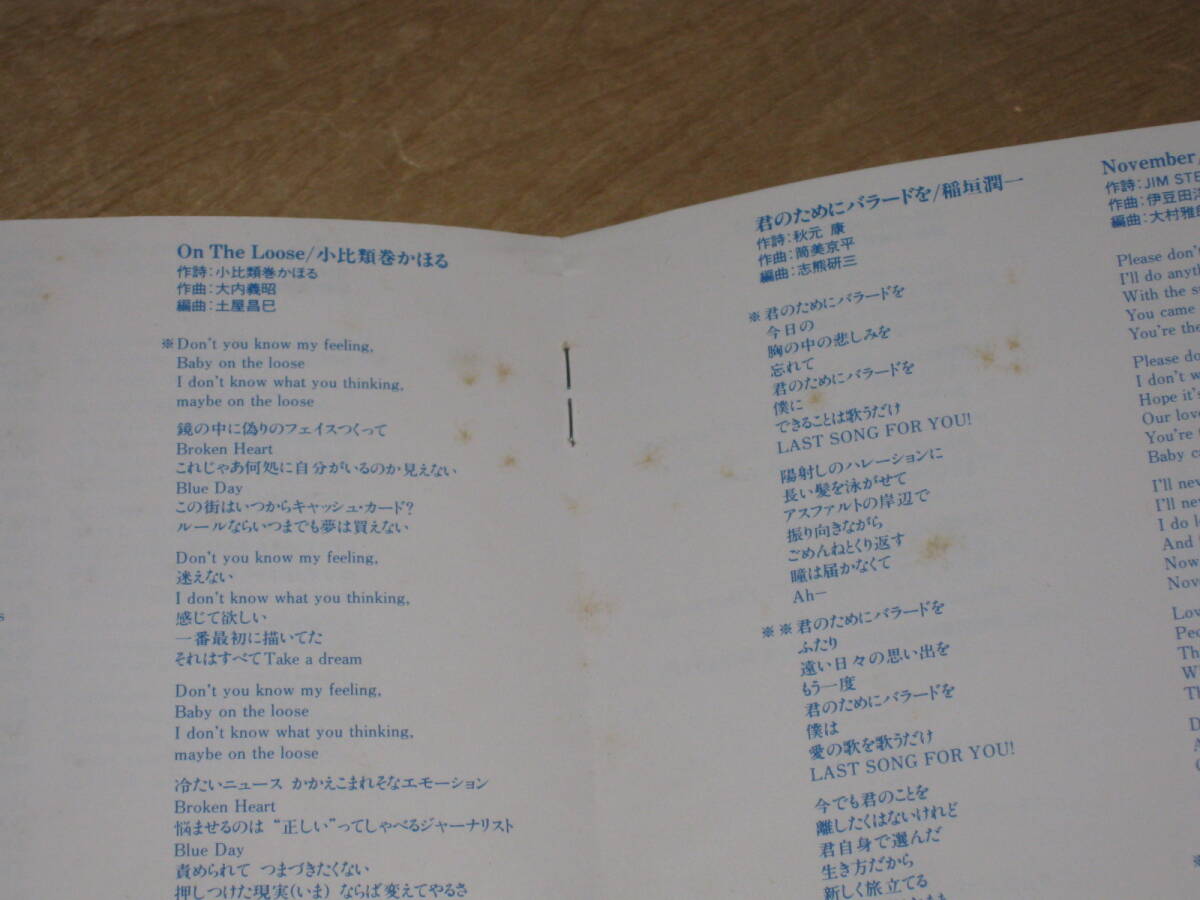 On The Loose/小比類巻かほる
作詩:小比類巻かほる
作曲:大内義昭
編曲:土屋昌巳
※Don't you know my feeling,
Baby on the loose
I don't know what you thinking,
maybe on the loose
鏡の中に偽りのフェイスつくって
Broken Heart
これじゃあ何処に自分がいるのか見えない
Blue Day
この街はいつからキャッシュ・カード?
ルールならいつまでも夢は買えない
Don't you know my feeling,
迷えない
I don't know what you thinking,
感じて欲しい
一番最初に描いてた
それはすべてTake a dream
Don't you know my feeling,
Baby on the loose
I don't know what you thinking,
maybe on the loose
冷たいニュース かかえこまれそなエモーション
Broken Heart
悩ませるのは “正しい”ってしゃべるジャーナリスト
Blue Day
責められて つまづきたくない
押しつけた現実(いま) ならば変えてやるさ
君のためにバラードを/稲垣潤一
作詩:秋元 康
作曲:筒美京平
編曲:志熊研三
※君のためにバラードを
今日の
胸の中の悲しみを
忘れて
君のためにバラードを
僕に
できることは歌うだけ
LAST SONG FOR YOU!
陽射しのハレーションに
長い髪を泳がせて
アスファルトの岸辺で
振り向きながら
ごめんねとくり返す
瞳は届かなくて
Ah―
※※君のためにバラードを
ふたり
遠い日々の思い出を
もう一度
君のためにバラードを
僕は
愛の歌を歌うだけ
LAST SONG FOR YOU!
今でも君のことを
離したくはないけれど
君自身で選んだ
生き方だから
新しく旅立てる
November/
作詩:JIM STE
作曲:伊豆田
編曲:大村雅
Please don't
I'll do anyth
With the s
You came
You're the
Please do
I don't w
Hope it's
Our lov
You're
Baby ca
I'll nev
I'll nev
I do l
And
Now
Nov
Lov
Peo
Th
W
Th
D
A